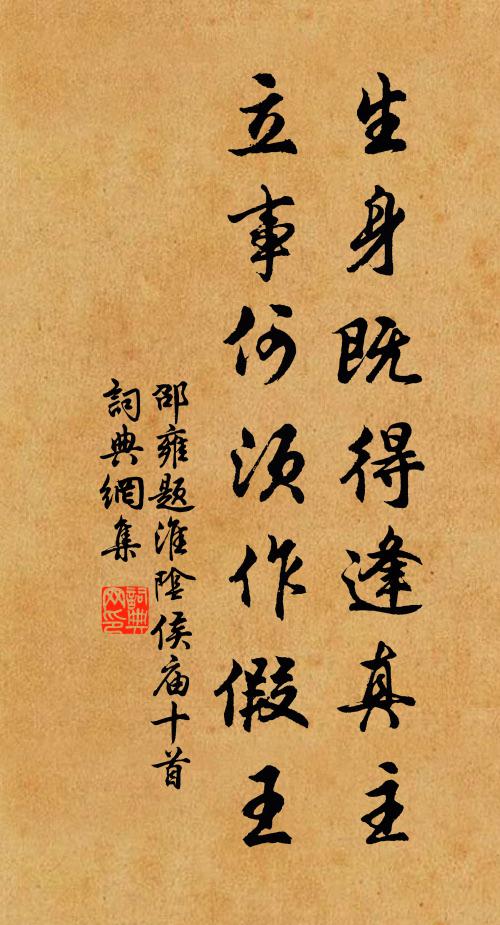 生身既得逢真主
立事何须作假王
邵雍题淮陰侯庙十首
詞典網集
詞典网印